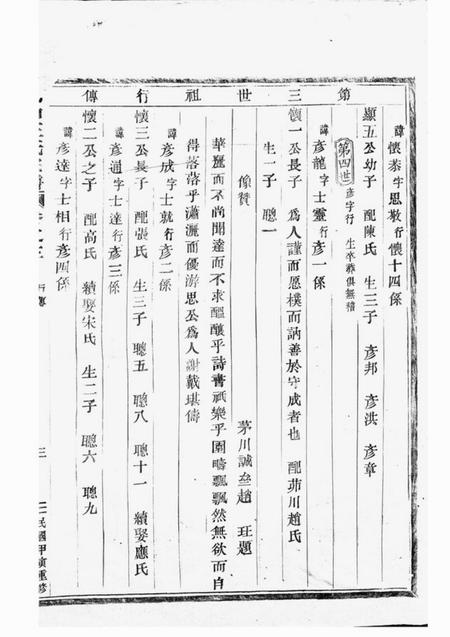 第三世祖行傳
諱懷泰字思敬行懷十四係
顯五公幼子 配陳氏 生三子 彥邦 彥洪 彥章
第四世 彥字行 生卒葬俱無稽
諱彥龍字士靈行彥一係
懷一公長子 為人謹而愿樸而訥善於守成者也 配茆川趙氏
生一子 聰一
像贊 茅川誠叁趙 玨題
華麗而不尚聞達而不求醞釀乎詩書祇樂乎園疇飄飄然無欲而自
得落落乎瀟灑而優游思公為人謝戴堪儔
諱彥成字士就行彥二係
懷三公長子 配張氏 生三子 聰五 聰八 聰十一 續娶應氏
諱彥通字士達行彥三係
懷二公之子 配高氏 續娶宋氏 生二子 聰六 聰九
諱彥達字士相行彥四係
行傳
三
民國甲寅重修